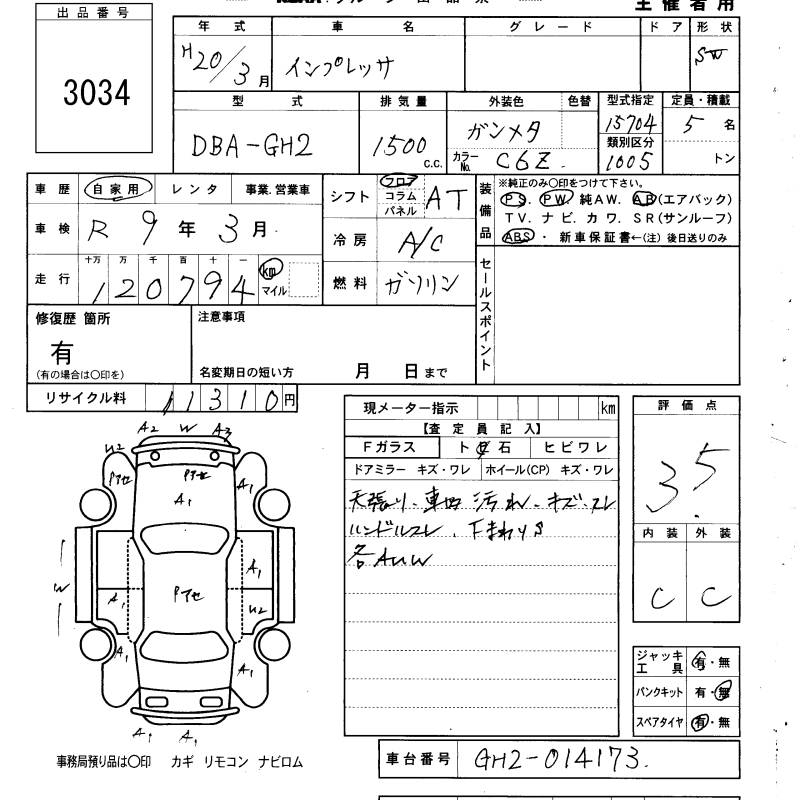 主催者用
出品番号
3034
年式 車名 グレード ドア 形状
H20/3月 インプレッサ SW
型式 排気量 外装色 色替 型式指定 定員・積載
DBA-GH2 1500 c.c. ガンメタ 15704 5名
カラーNo. C6Z. 類別区分 1005 トン
車歴 自家用 レンタ 事業.営業車
シフト フロア コラム パネル AT
装備品 ※純正のみ〇印をつけて下さい。
PS. PW 純AW. AB(エアバック)
TV. ナビ. カワ. SR(サンルーフ)
ABS・ 新車保証書←(注) 後日送りのみ
車検 R 9年 3月
冷房 A/C
走行 十万 万 千 百 十 一
120794 km マイル
燃料 ガソリン
セールスポイント
修復歴 箇所
有
(有の場合は〇印を)
注意事項
名変期日の短い方 月 日まで
リサイクル料 11310円
現メーター指示 km
【査定員記入】
Fガラス ト 石 ヒビワレ
ドアミラー キズ・ワレ ホイール(CP) キズ・ワレ
天張り、車内 汚れ・キズ・スレ
ハンドルスレ、下まわりS
各AUW
評価点
3.5
内装 外装
C C
A2 W A3
U2
Pアセ Pアセ
A1
A1
W A1 Pアセ U2
A1 A1
A1 A1
ジャッキ工具 有・無
パンクキット 有・無
スペアタイヤ 有・無
事務局預り品は〇印 カギ リモコン ナビロム
車台番号 GH2-014173.